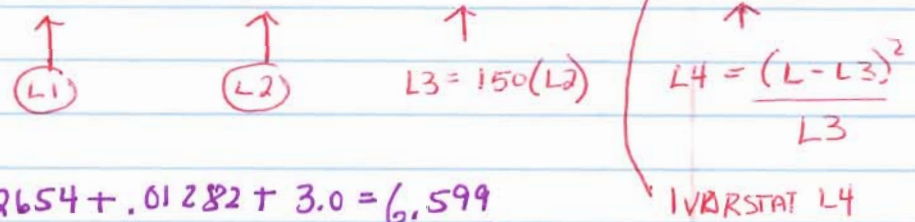 L1 L2 L3 = 150(L2) L4 = (L - L3)²
L3
2654 + .01282 + 3.0 = 6.599
1VARSTAT L4